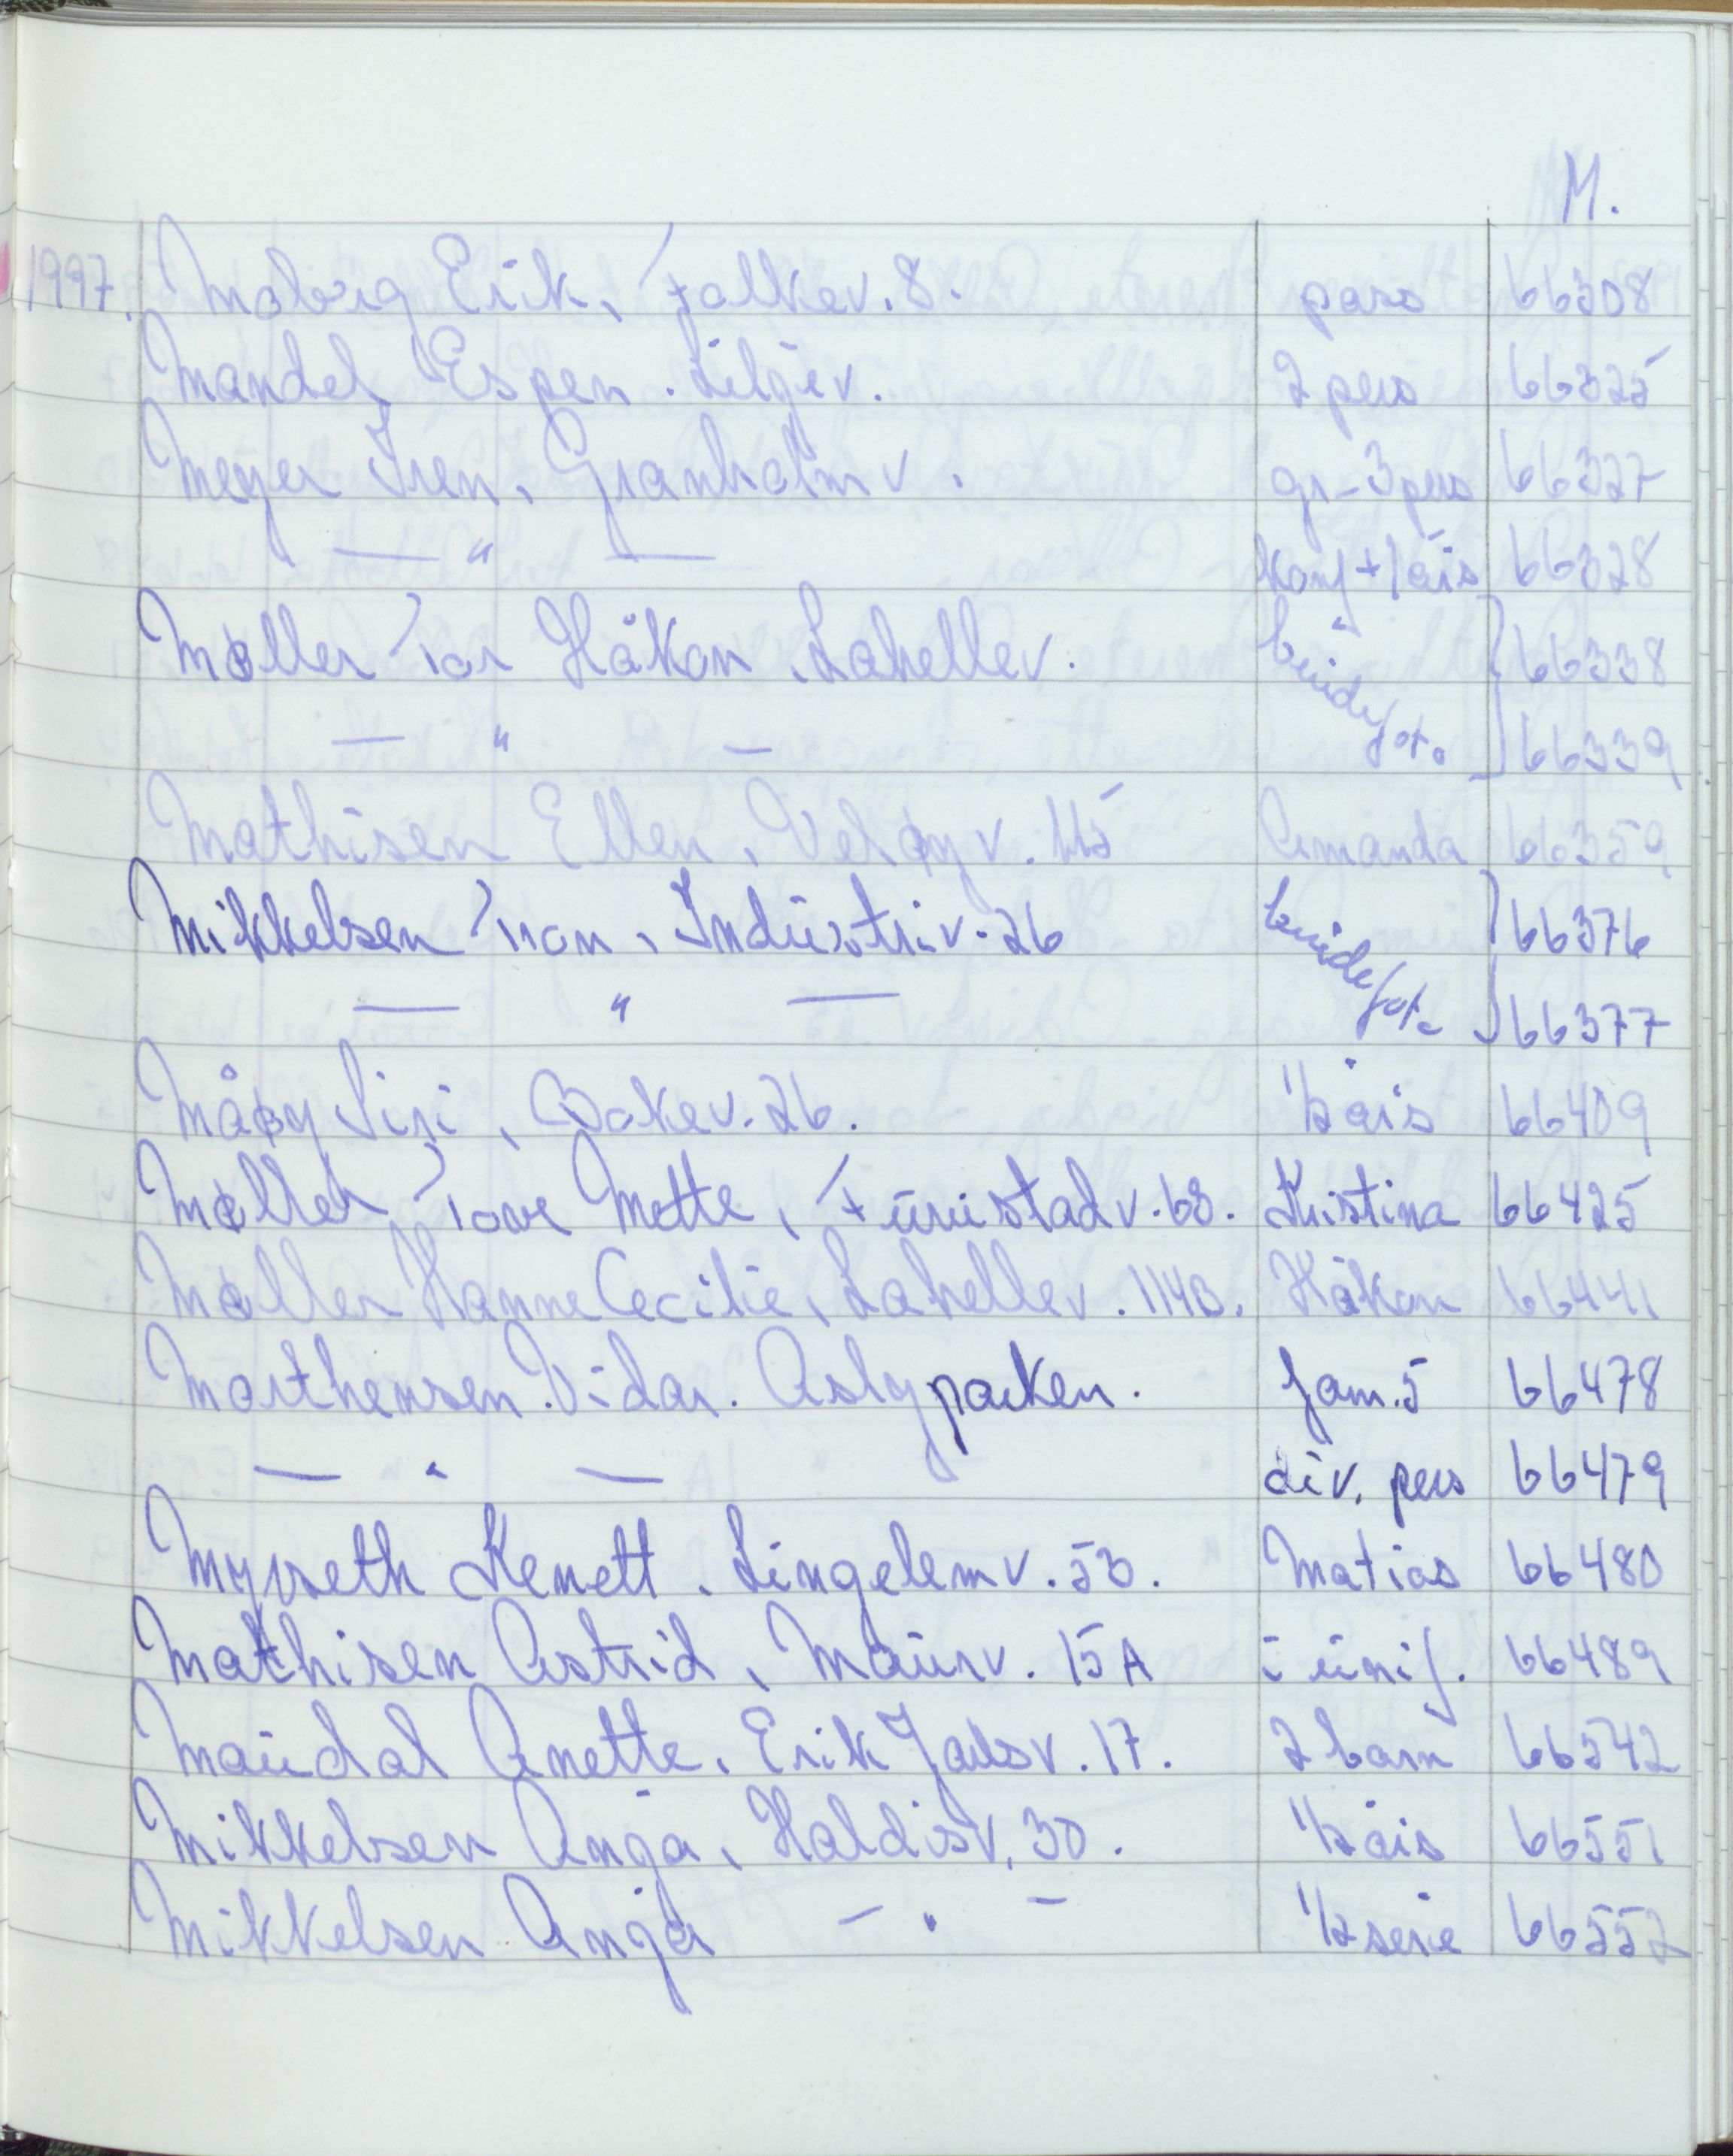 M.
1997. Moberg Erik, Falkev. 8. pass 66308
Mandel Espen. Liljev. 2 pers 66325
Meyer Iren, Granholmv. gr-3pers 66327
— " — konf + 1 áis 66328
Møller Tor Håkon, Lahellev. brudefoto 66338
— " — 66339
Mathisen Ellen, Veløyv. 115 Amanda 66359
Mikkelsen Tron, Industriv. 26 brudefoto 66376
— " — 66377
Måøy Siri, Bakev. 26. 1/2 áis 66409
Møller Tove Mette, Furustadv. 68. Kristina 66425
Møller Hanne Cecilie, Lahellev. 114B. Håkon 66441
Marthensen Vidar. Astyparken. fam. 5 66478
— " — div. pers 66479
Myrseth Kenett. Lingelemv. 53. Matias 66480
Mathisen Astrid, Maurv. 15A i unif. 66489
Maudal Anette, Erik Jarlsv. 17. 2 barn 66542
Mikkelsen Anja, Haldisv. 30. 1/2 áis 66551
Mikkelsen Anja — " — 1/2 serie 66552